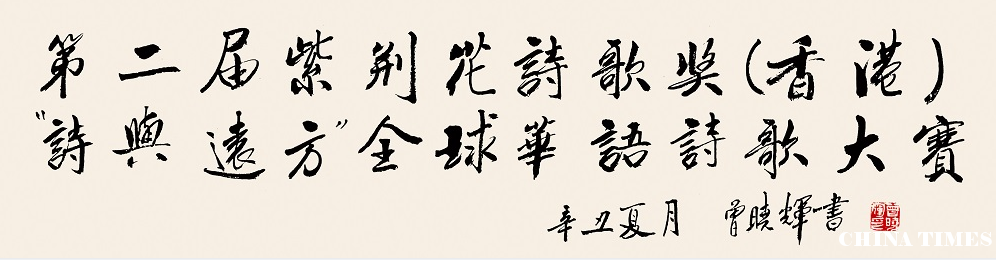 第二届紫荆花詩歌奖(香港)
"詩與遠方"全球華語詩歌大賽
辛丑夏月 曾曉輝書
CHINA TIMES